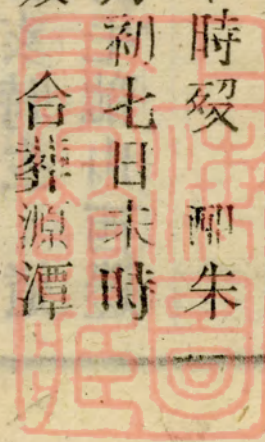 時歿 配朱
初七日未時
合葬源潭